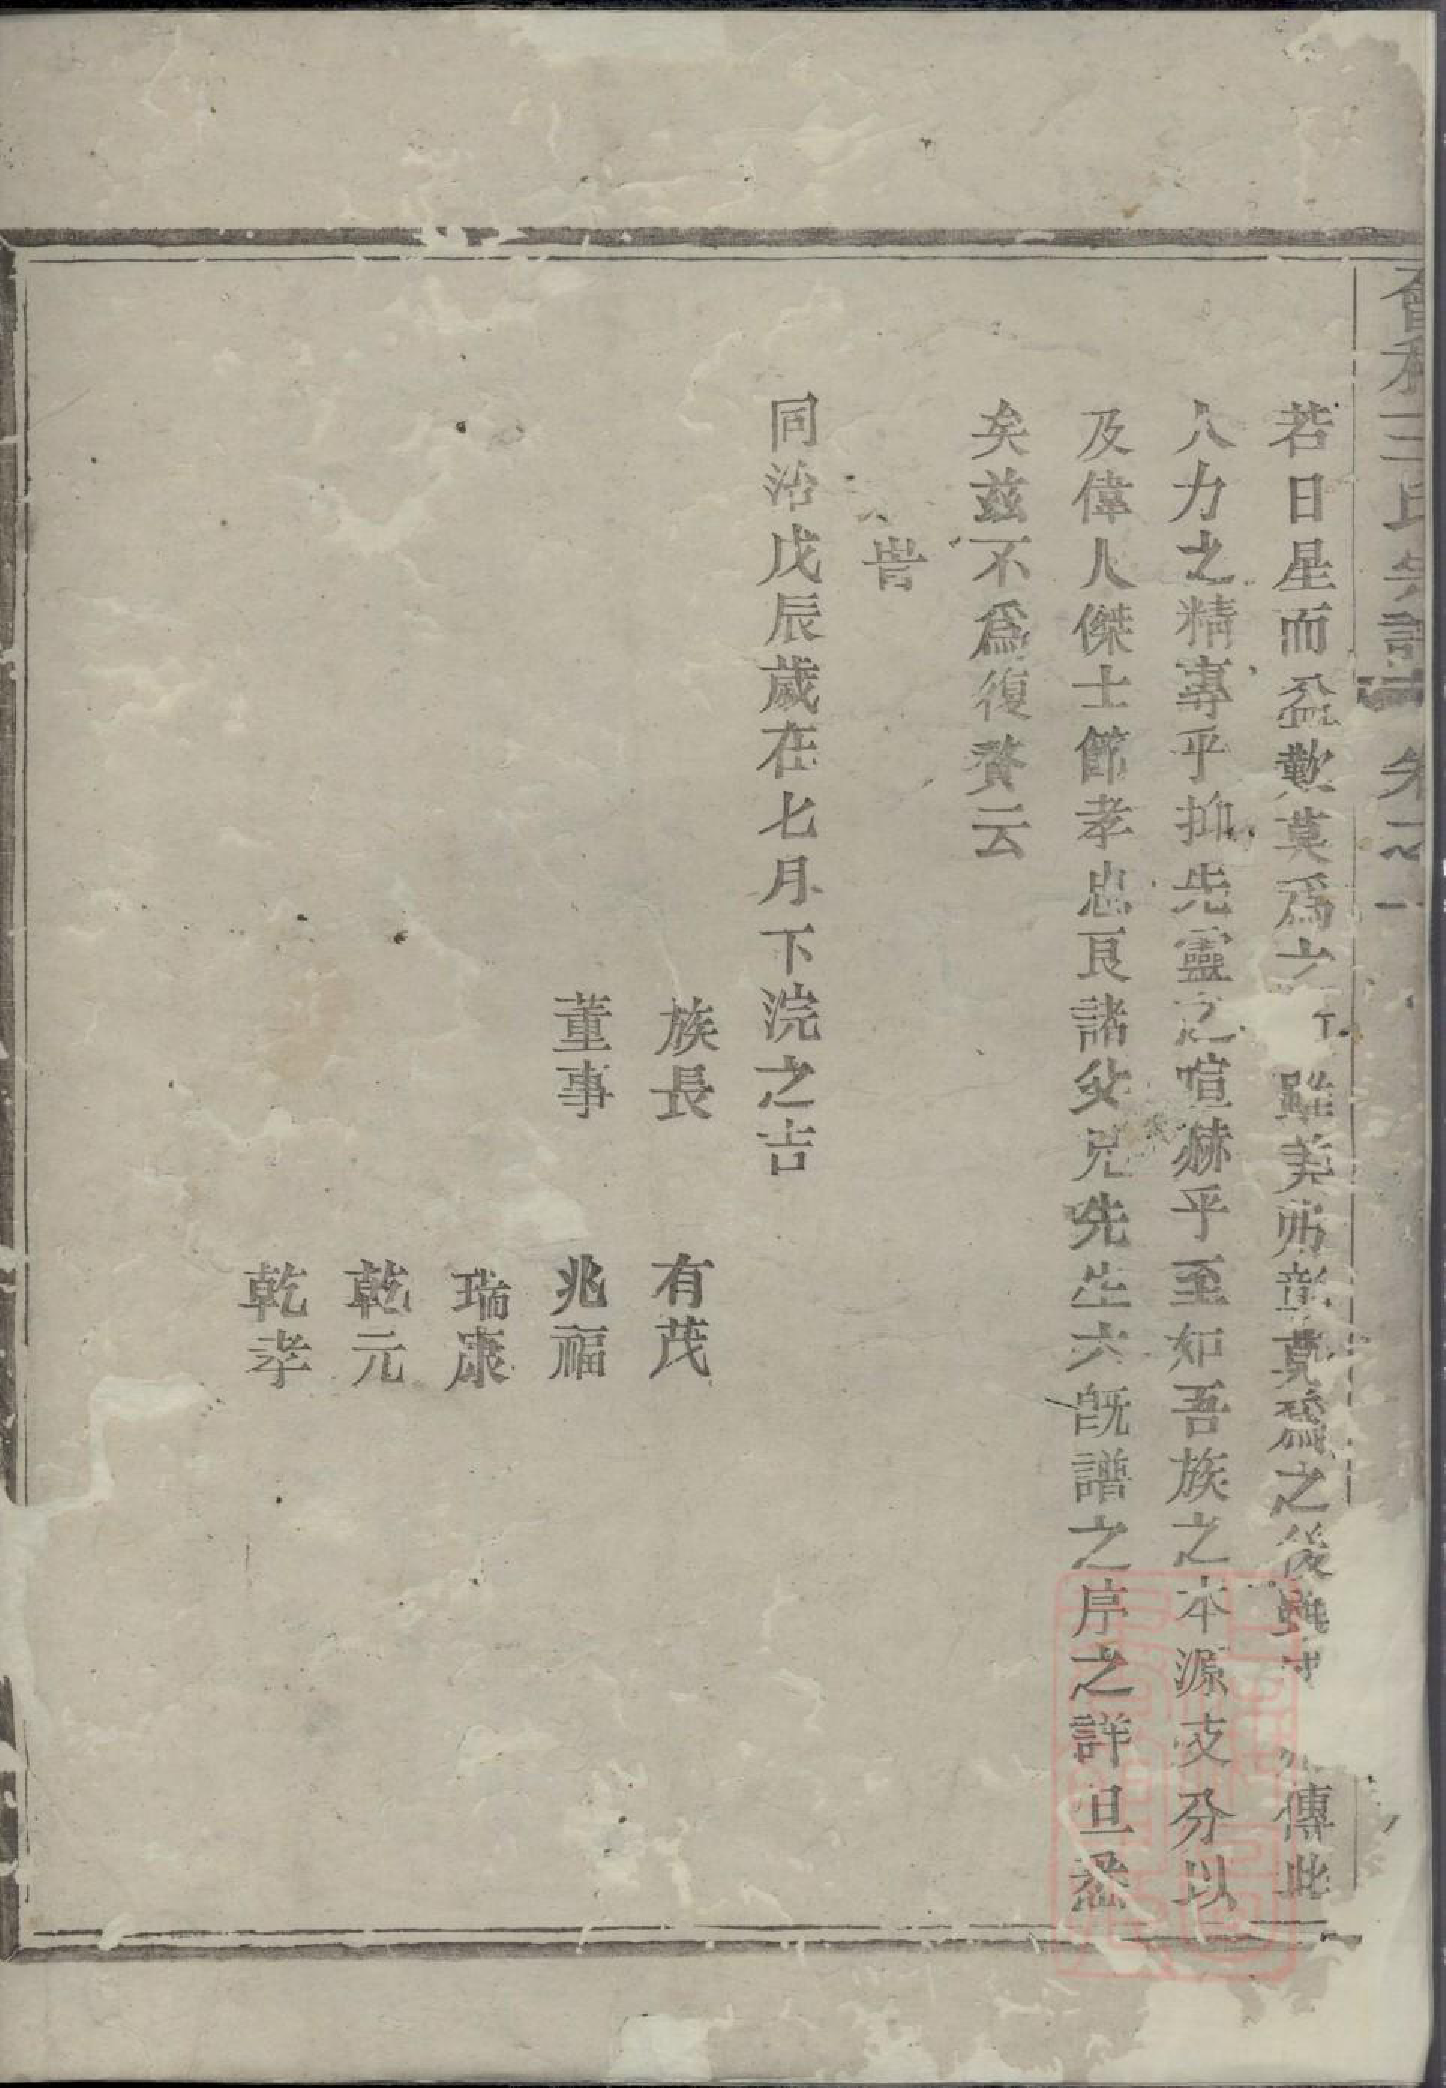 氏宗譜 卷之一
若日星而益歎莫爲之 雖美弗彰莫爲之後雖 傳此
人力之精專乎抑先靈之喧赫乎至如吾族之本源支分以
及偉人傑士節孝忠良諸父兄先生六旣譜之序之詳且悉
矣兹不爲復贅云
旹
同治戊辰歲在七月下浣之吉
族長 有茂
董事 兆福
瑞康
乾元
乾孝